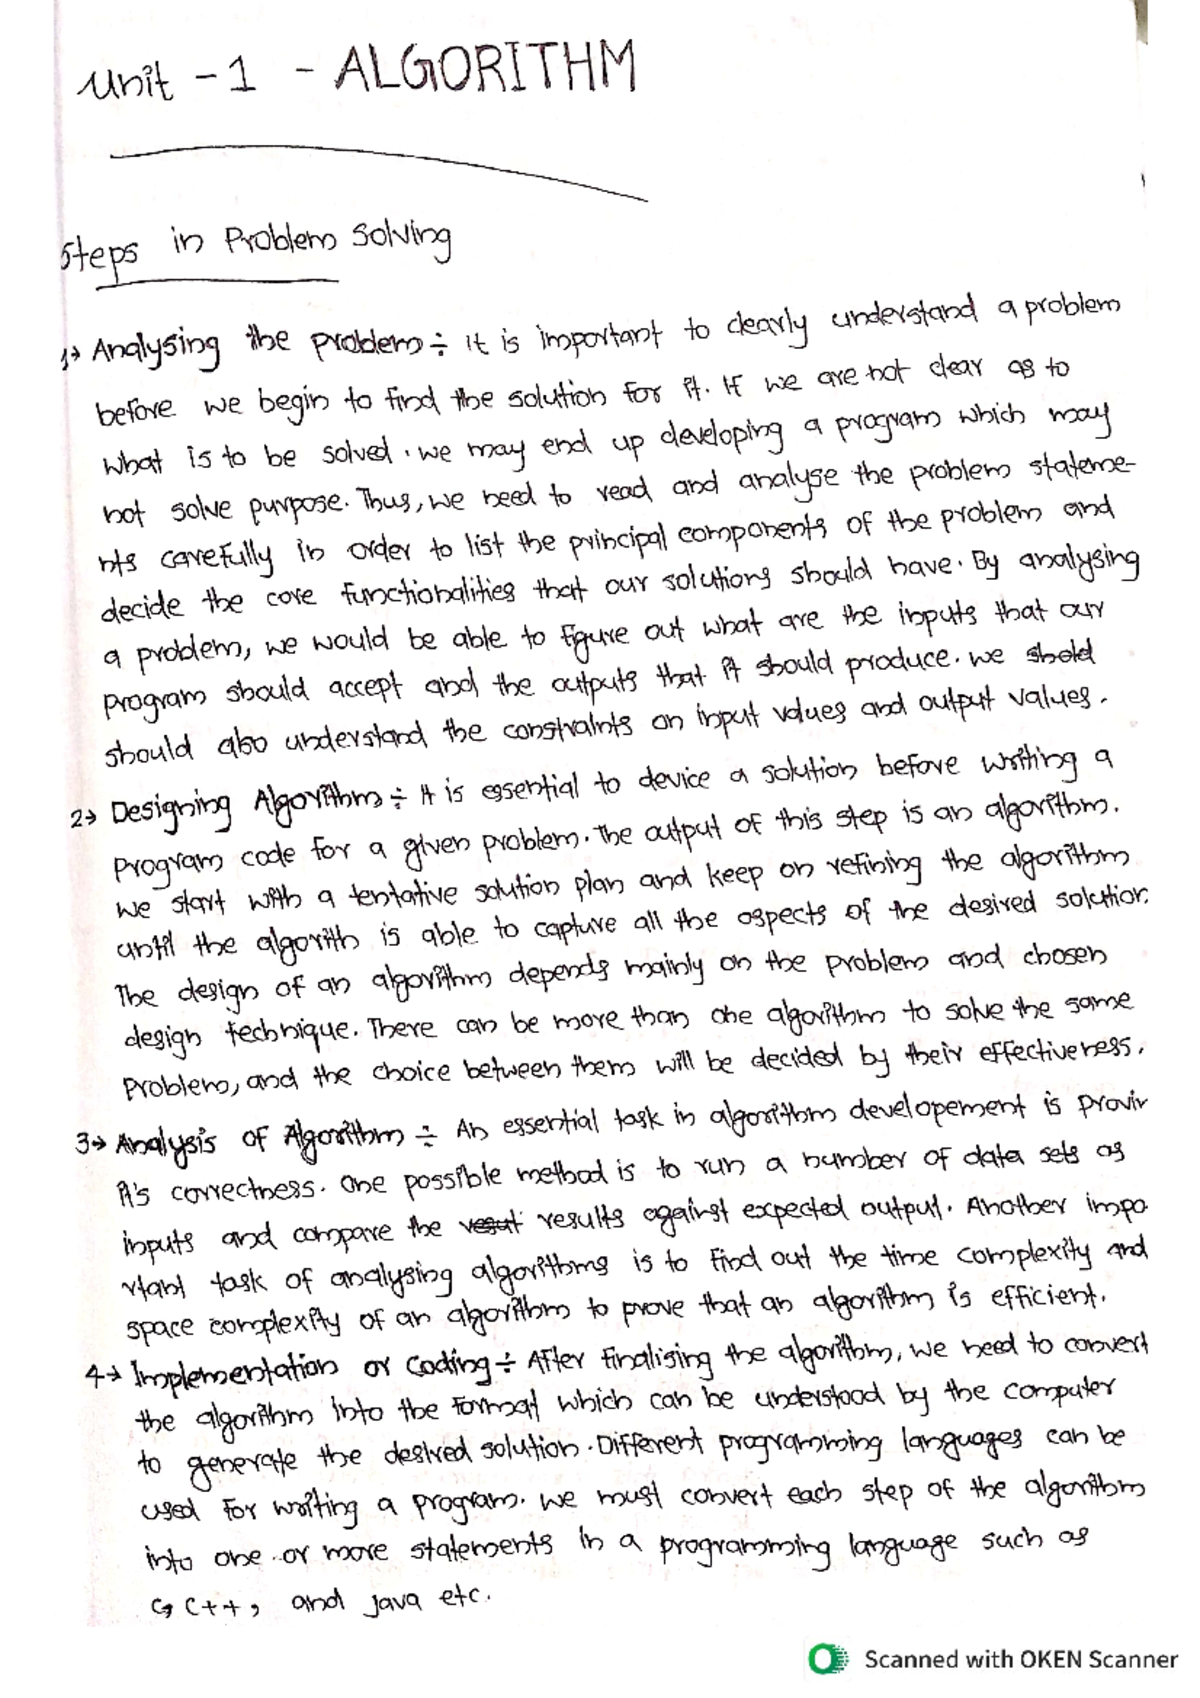 Unit - 1 - ALGORITHM
Steps in Problem Solving
1→ Analysing the problem ÷ it is important to clearly understand a problem
before we begin to find the solution for it. If we are not clear as to
what is to be solved. we may end up developing a program which may
not solve purpose. Thus, we need to read and analyse the problem stateme-
nts carefully in order to list the principal components of the problem and
decide the core functionalities that our solutions should have. By analysing
a problem, we would be able to figure out what are the inputs that our
program should accept and the outputs that it should produce. we shold
should also understand the constraints on input values and output values.
2→ Designing Algorithm ÷ It is essential to device a solution before writing a
program code for a given problem. The output of this step is an algorithm.
we start with a tentative solution plan and keep on refining the algorithm
until the algorith is able to capture all the aspects of the desired solution.
The design of an algorithm depends mainly on the problem and chosen
design technique. There can be more than one algorithm to solve the same
problem, and the choice between them will be decided by their effectiveness.
3→ Analysis of Algorithm ÷ An essential task in algorithm developement is provin
it's correctness. One possible method is to run a number of data sets as
inputs and compare the resut results against expected output. Another impo
rtant task of analysing algorithms is to find out the time complexity and
space complexity of an algorithm to prove that an algorithm is efficient.
4→ Implementation or Coding ÷ After finalising the algorithm, we need to convert
the algorithm into the format which can be understood by the computer
to generate the desired solution. Different programming languages can be
used for writing a program. we must convert each step of the algorithm
into one or more statements in a programming language such as
C, C++, and java etc.
Scanned with OKEN Scanner